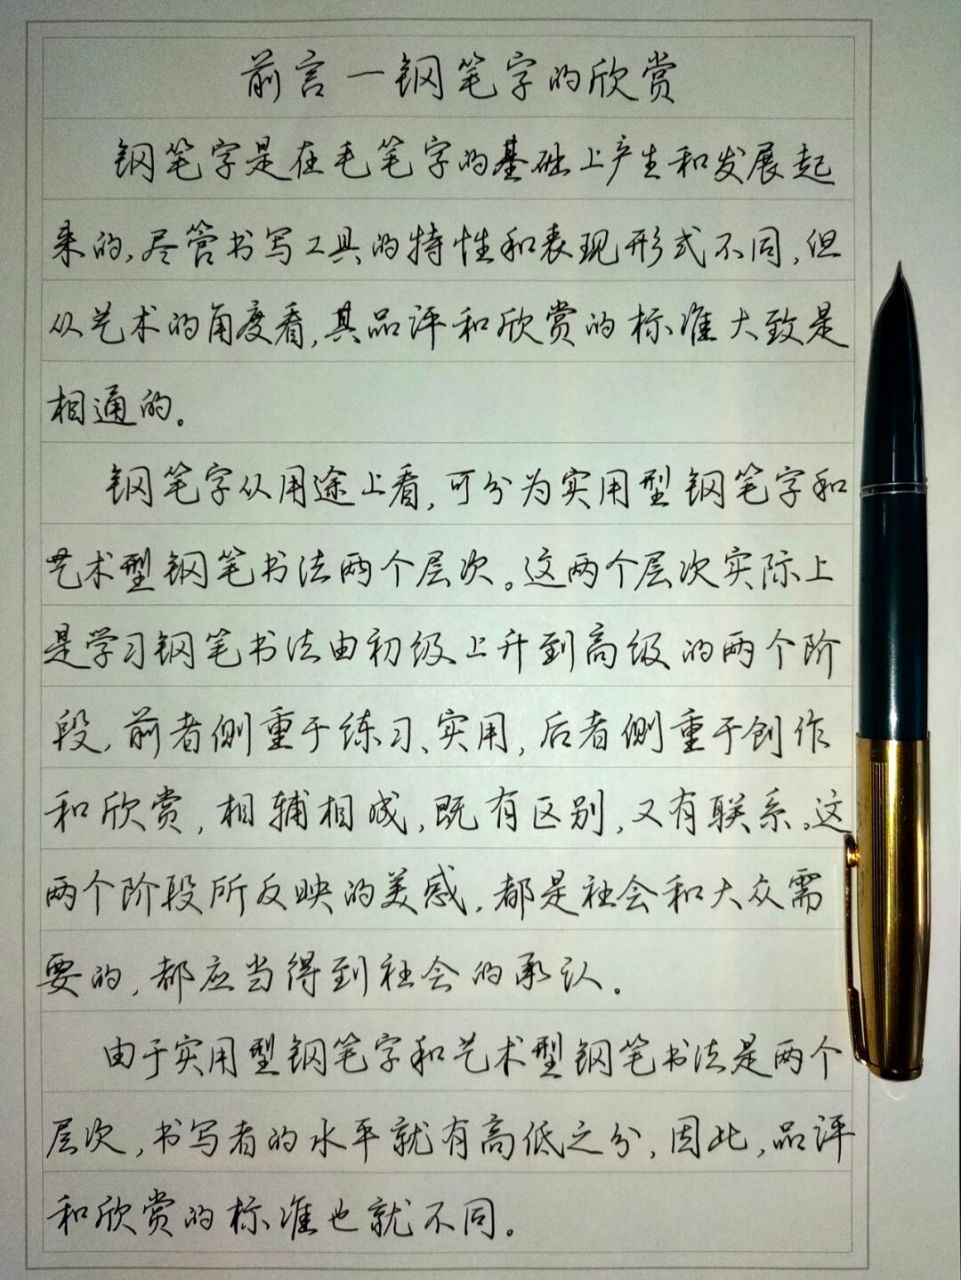 前言一钢笔字的欣赏
钢笔字是在毛笔字的基础上产生和发展起
来的,尽管书写工具的特性和表现形式不同,但
从艺术的角度看,其品评和欣赏的标准大致是
相通的。
钢笔字从用途上看,可分为实用型钢笔字和
艺术型钢笔书法两个层次。这两个层次实际上
是学习钢笔书法由初级上升到高级的两个阶
段,前者侧重于练习、实用,后者侧重于创作
和欣赏,相辅相成,既有区别,又有联系。这
两个阶段所反映的美感,都是社会和大众需
要的,都应当得到社会的承认。
由于实用型钢笔字和艺术型钢笔书法是两个
层次,书写者的水平就有高低之分,因此,品评
和欣赏的标准也就不同。